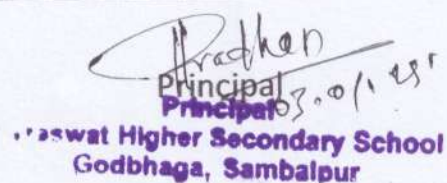 Pradhan
Principal
Principal 03.01.25
aswat Higher Secondary School
Godbhaga, Sambalpur